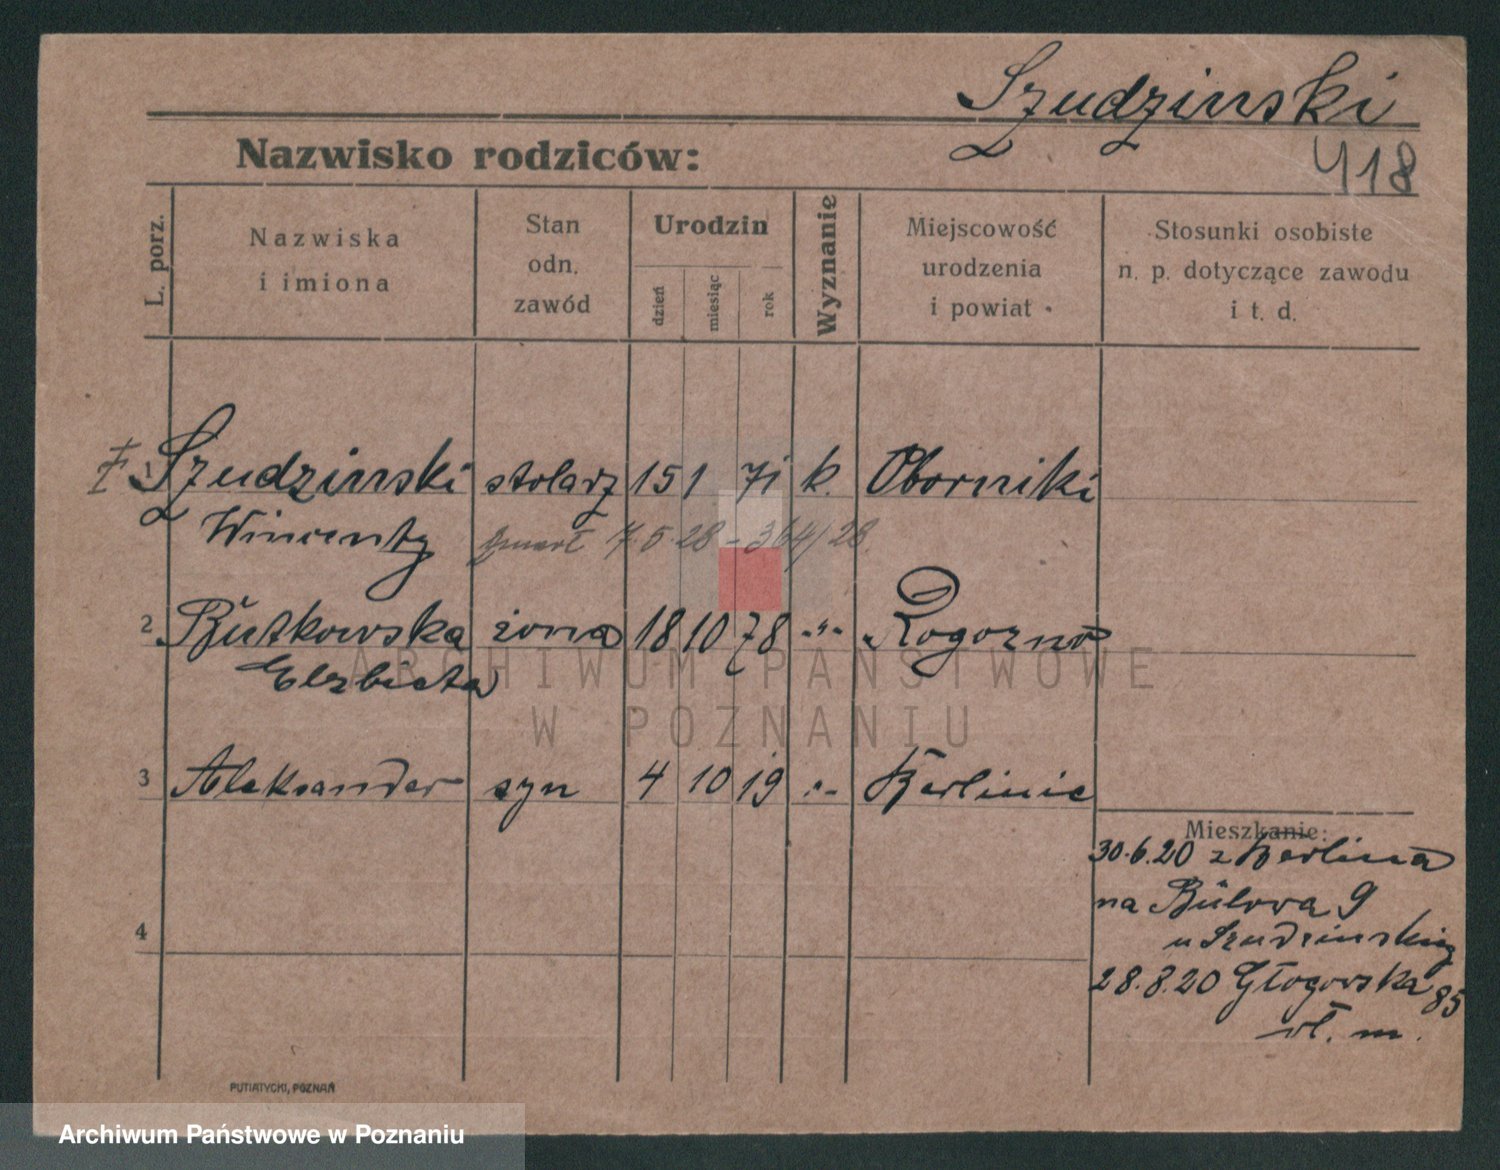 Szudzinski
418
Nazwisko rodziców:
L. porz.
Nazwiska
i imiona
Stan
odn.
zawód
Urodzin
dzień
miesiąc
rok
Wyznanie
Miejscowość
urodzenia
i powiat
Stosunki osobiste
n. p. dotyczące zawodu
i t. d.
1 Szudzinski stolarz 15 1 71 k. Oborniki
Wincenty zmarł 7.5.28 - 364/28
2 Butkowska żona 18 10 78 -"- Rogozno
Elzbieta
3 Aleksander syn 4 10 19 -"- Berlinie
Mieszkanie:
30.6.20 z Berlina
na Bülowa 9
u Szudzinskiej
4
28.8.20 Głogowska 85
wł. m.
PUTIATYCKI, POZNAŃ
ARCHIWUM PAŃSTWOWE
W POZNANIU
Archiwum Państwowe w Poznaniu